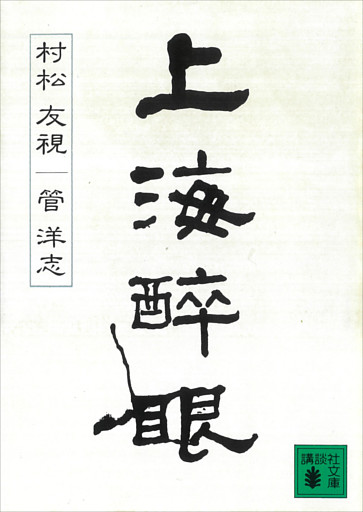 上海醉眼
村松友視
管洋志
講談社文庫